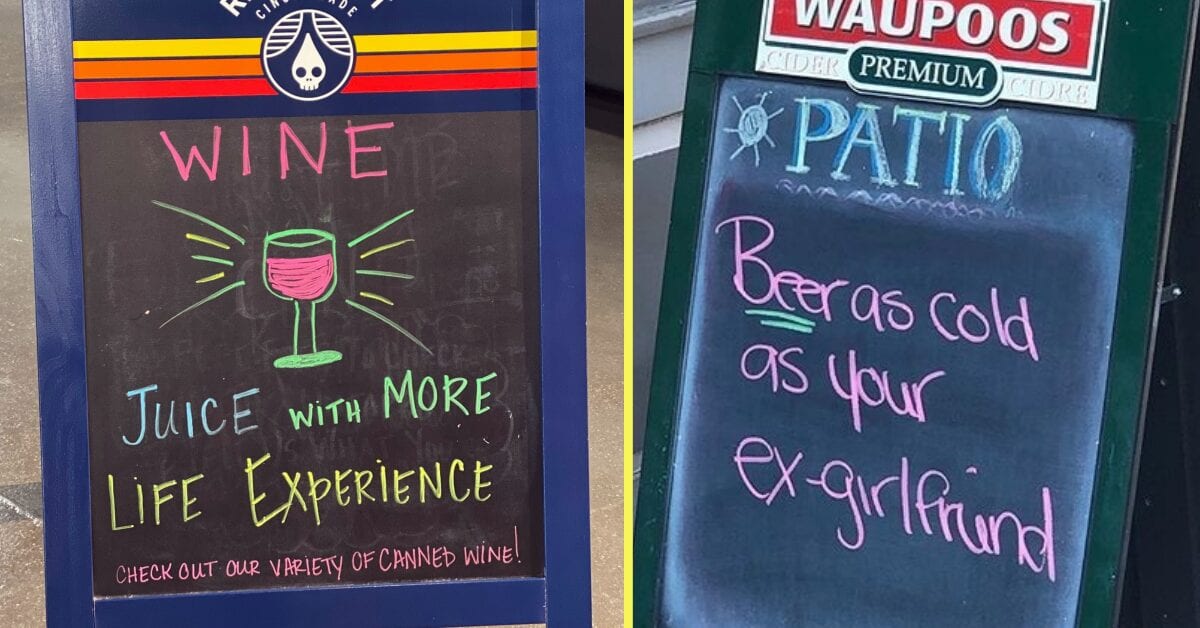 WINE
JUICE WITH MORE
LIFE EXPERIENCE
CHECK OUT OUR VARIETY OF CANNED WINE!
WAUPOOS
CIDER PREMIUM CIDRE
PATIO
Beer as cold
as your
ex-girlfriend